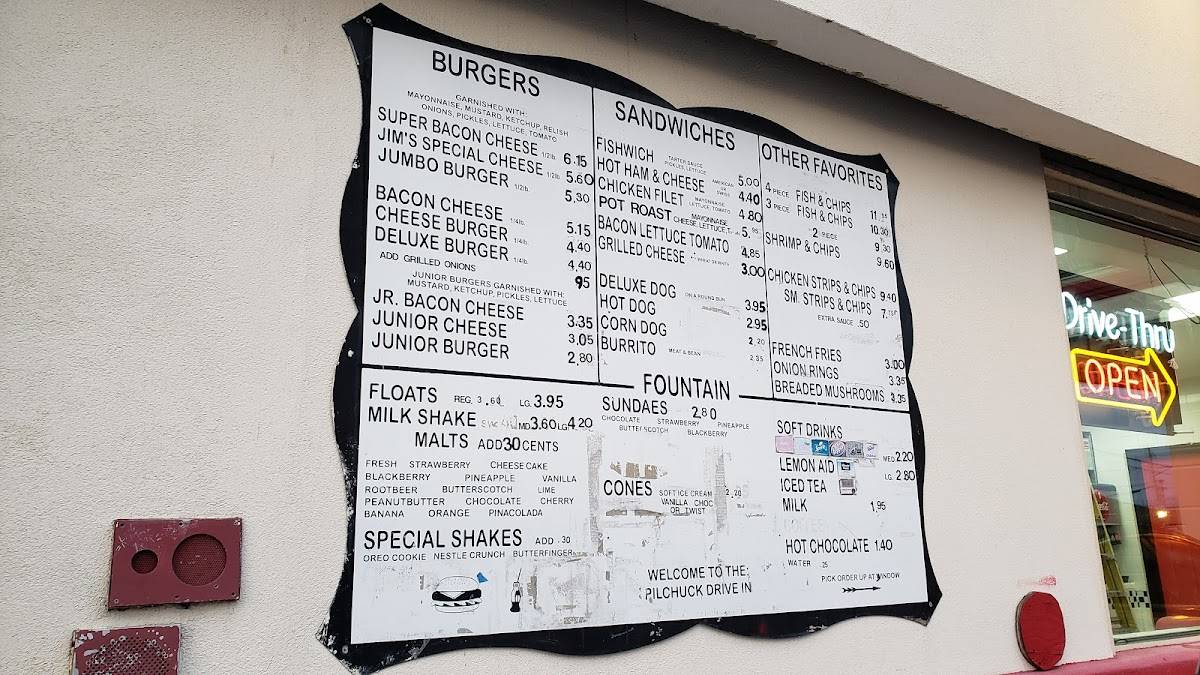 BURGERS
GARNISHED WITH:
MAYONNAISE, MUSTARD, KETCHUP, RELISH
ONIONS, PICKLES, LETTUCE, TOMATO
SUPER BACON CHEESE 1/2lb. 6.15
JIM'S SPECIAL CHEESE 1/2lb. 5.60
JUMBO BURGER 1/2lb. 5.30
BACON CHEESE 1/4lb. 5.15
CHEESE BURGER 1/4lb. 4.40
DELUXE BURGER 1/4lb. 4.40
ADD GRILLED ONIONS 95
JUNIOR BURGERS GARNISHED WITH:
MUSTARD, KETCHUP, PICKLES, LETTUCE
JR. BACON CHEESE 3.35
JUNIOR CHEESE 3.05
JUNIOR BURGER 2.80
SANDWICHES
FISHWICH TARTER SAUCE PICKLES, LETTUCE 5.00
HOT HAM & CHEESE AMERICAN OR SWISS 4.40
CHICKEN FILET MAYONNAISE LETTUCE, TOMATO 4.80
POT ROAST MAYONNAISE, CHEESE, LETTUCE, 5.
BACON LETTUCE TOMATO 4.85
GRILLED CHEESE 3.00
DELUXE DOG ON A ROUND BUN 3.95
HOT DOG 2.95
CORN DOG 2.20
BURRITO MEAT & BEAN 2.35
OTHER FAVORITES
4 PIECE FISH & CHIPS 11.
3 PIECE FISH & CHIPS 10.30
2 PIECE 9.30
SHRIMP & CHIPS 9.60
CHICKEN STRIPS & CHIPS 9.40
SM. STRIPS & CHIPS 7.
EXTRA SAUCE .50
FRENCH FRIES 3.00
ONION RINGS 3.35
BREADED MUSHROOMS 3.35
FOUNTAIN
FLOATS REG. 3.60 LG. 3.95
MILK SHAKE MD 3.60 LG 4.20
MALTS ADD 30 CENTS
FRESH STRAWBERRY CHEESE CAKE
BLACKBERRY PINEAPPLE VANILLA
ROOTBEER BUTTERSCOTCH LIME
PEANUTBUTTER CHOCOLATE CHERRY
BANANA ORANGE PINACOLADA
SPECIAL SHAKES ADD .30
OREO COOKIE NESTLE CRUNCH BUTTERFINGER
SUNDAES 2.80
CHOCOLATE STRAWBERRY PINEAPPLE
BUTTERSCOTCH BLACKBERRY
CONES SOFT ICE CREAM 2.20
VANILLA CHOC
OR TWIST
WELCOME TO THE:
PILCHUCK DRIVE IN
SOFT DRINKS
MED 2.20
LEMON AID LG. 2.80
ICED TEA
MILK 1.95
HOT CHOCOLATE 1.40
WATER .25
PICK ORDER UP AT WINDOW
Drive-Thru
OPEN